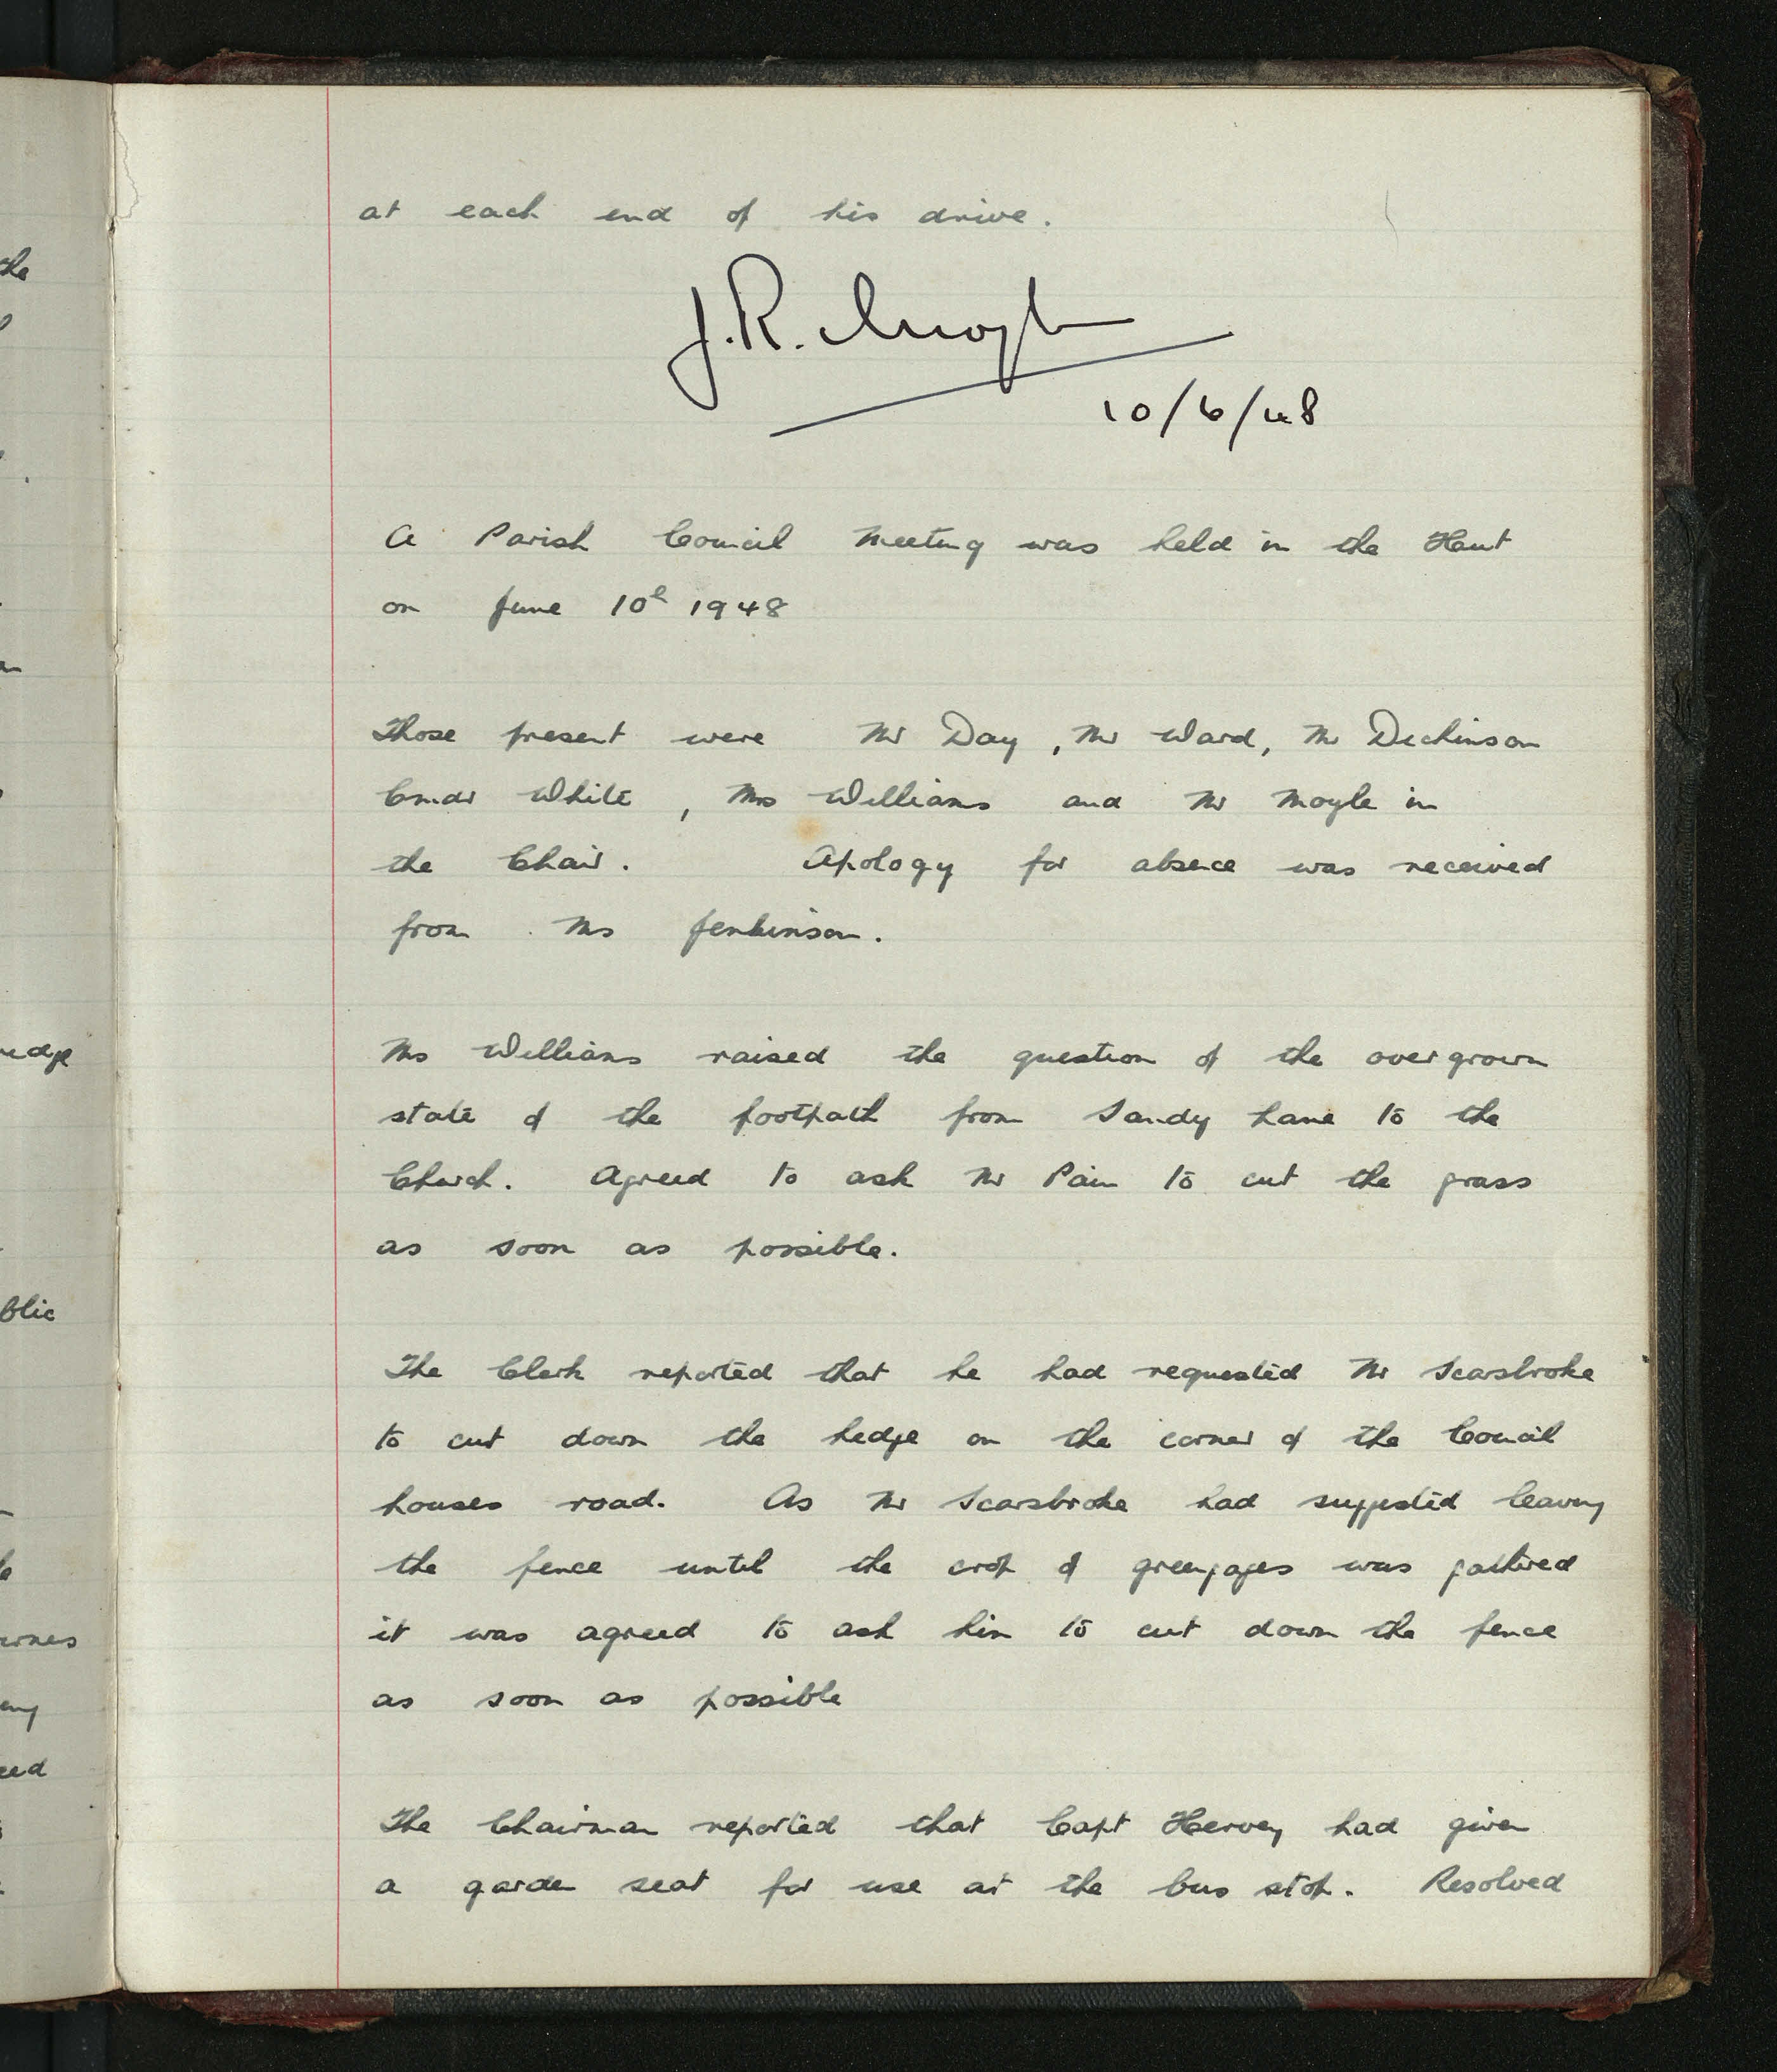 at each end of his drive.
J.R. Moyle
10/6/48
A Parish Council Meeting was held in the Haut
on June 10th 1948
Those present were Mr Day, Mr Ward, Mr Dickinson
Cmdr White, Mrs Williams and Mr Moyle in
the Chair. Apology for absence was received
from Mrs Jenkinson.
Mrs Williams raised the question of the overgrown
state of the footpath from Sandy Lane to the
Church. Agreed to ask Mr Pain to cut the grass
as soon as possible.
The Clerk reported that he had requested Mr Scarsbroke
to cut down the hedge on the corner of the Council
houses road. As Mr Scarsbroke had suggested leaving
the fence until the crop of greengages was gathered
it was agreed to ask him to cut down the fence
as soon as possible
The Chairman reported that Capt Hervey had given
a garden seat for use at the bus stop. Resolved